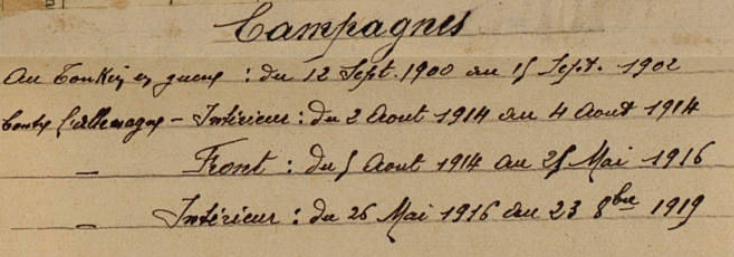 Campagnes
Au Tonkin en guerre : du 12 Sept. 1900 au 15 Sept. 1902
Contre l'allemagne - Intérieur : du 2 Aout 1914 au 4 Aout 1914
— Front : du 5 Aout 1914 au 25 Mai 1916
— Intérieur : du 26 Mai 1916 au 23 8bre 1919